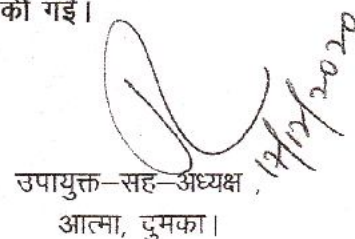 की गई।
17/12/2020
उपायुक्त–सह–अध्यक्ष,
आत्मा, दुमका।